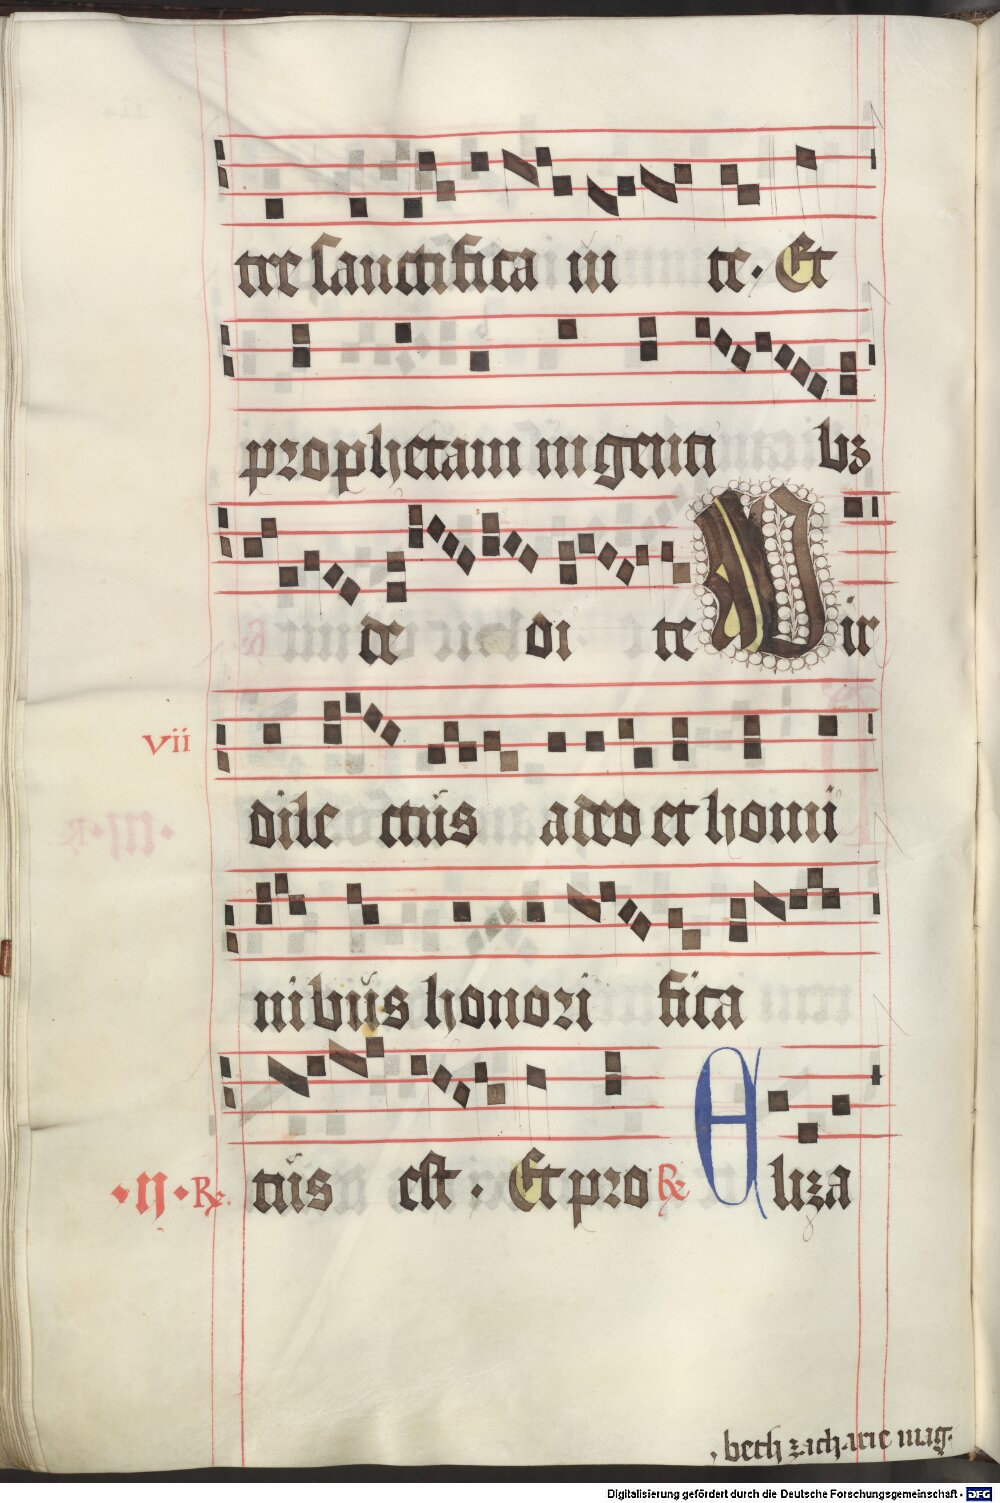 tre sanctifica ui te. Et
prophetam in genti bꝫ
de di te Uir
vii
dile ctus a deo et homi
nibus honori fica
·II· ℟. tus est. Et pro ℟ Eliza
beth zacharie mag.
Digitalisierung gefördert durch die Deutsche Forschungsgemeinschaft - DFG